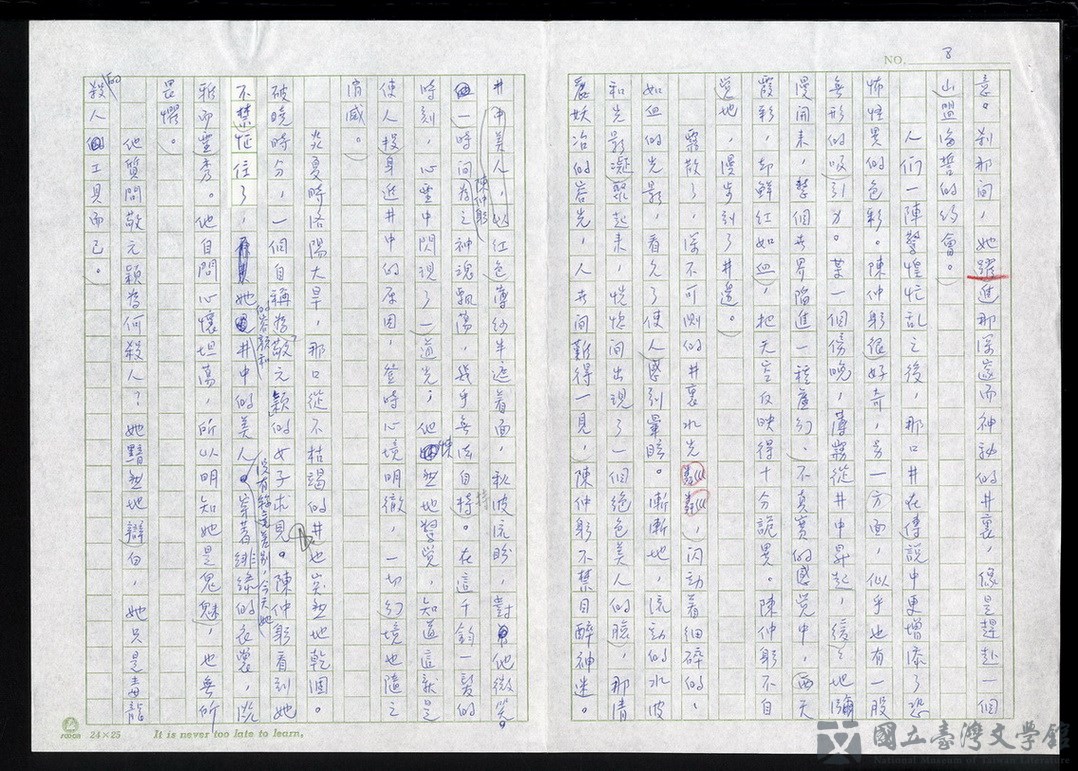 NO. 8
意。剎那間，她躍進那深邃而神祕的井裏，像是趕赴一個
山盟海誓的約會。
人們一陣驚惶忙亂之後，那口井在傳說中更增添了恐
怖怪異的色彩。陳仲躬很好奇，另一方面，似乎也有一股
無形的吸引力。某一個傍晚，薄霧從井中昇起，緩緩地瀰
漫開來，整個世界陷進一種虛幻、不真實的感覺中，西天
霞彩，却鮮紅如血，把天空反映得十分詭異。陳仲躬不自
覺地，漫步到了井邊。
霧散了，深不可測的井裏水光粼粼，閃動着細碎的，
如血的光影，看久了使人感到暈眩。漸漸地，流動的水波
和光影凝聚起來，恍惚間出現了一個絕色美人的臉，那清
麗妖冶的容光，人世間難得一見，陳仲躬不禁目醉神迷。
井中美人，以紅色薄紗半遮着面，秋波流盼，對他微笑。
一時間陳仲躬為之神魂飄蕩，幾乎無法自持。在這千鈞一髮的
時刻，心靈中閃現了一道光，他悚然地警覺，知道這就是
使人投身進井中的原因，登時心境明徹，一切幻境也隨之
消滅。
炎夏時洛陽大旱，那口從不枯竭的井也突然地乾涸。
破曉時分，一個自稱為敬元穎的女子求見。陳仲躬看到她
不禁怔住了，她的容顏和井中的美人沒有絲毫差別，今天她穿著緋綠的衣裳，
雅而靈秀。他自問心懷坦蕩，所以明知她是鬼魅，也無所
畏懼。
他質問敬元穎為何殺人？她黯然地辯白，她只是毒龍
殺人的工具而已。
24×25 It is never too late to learn.
國立臺灣文學館
National Museum of Taiwan Literature